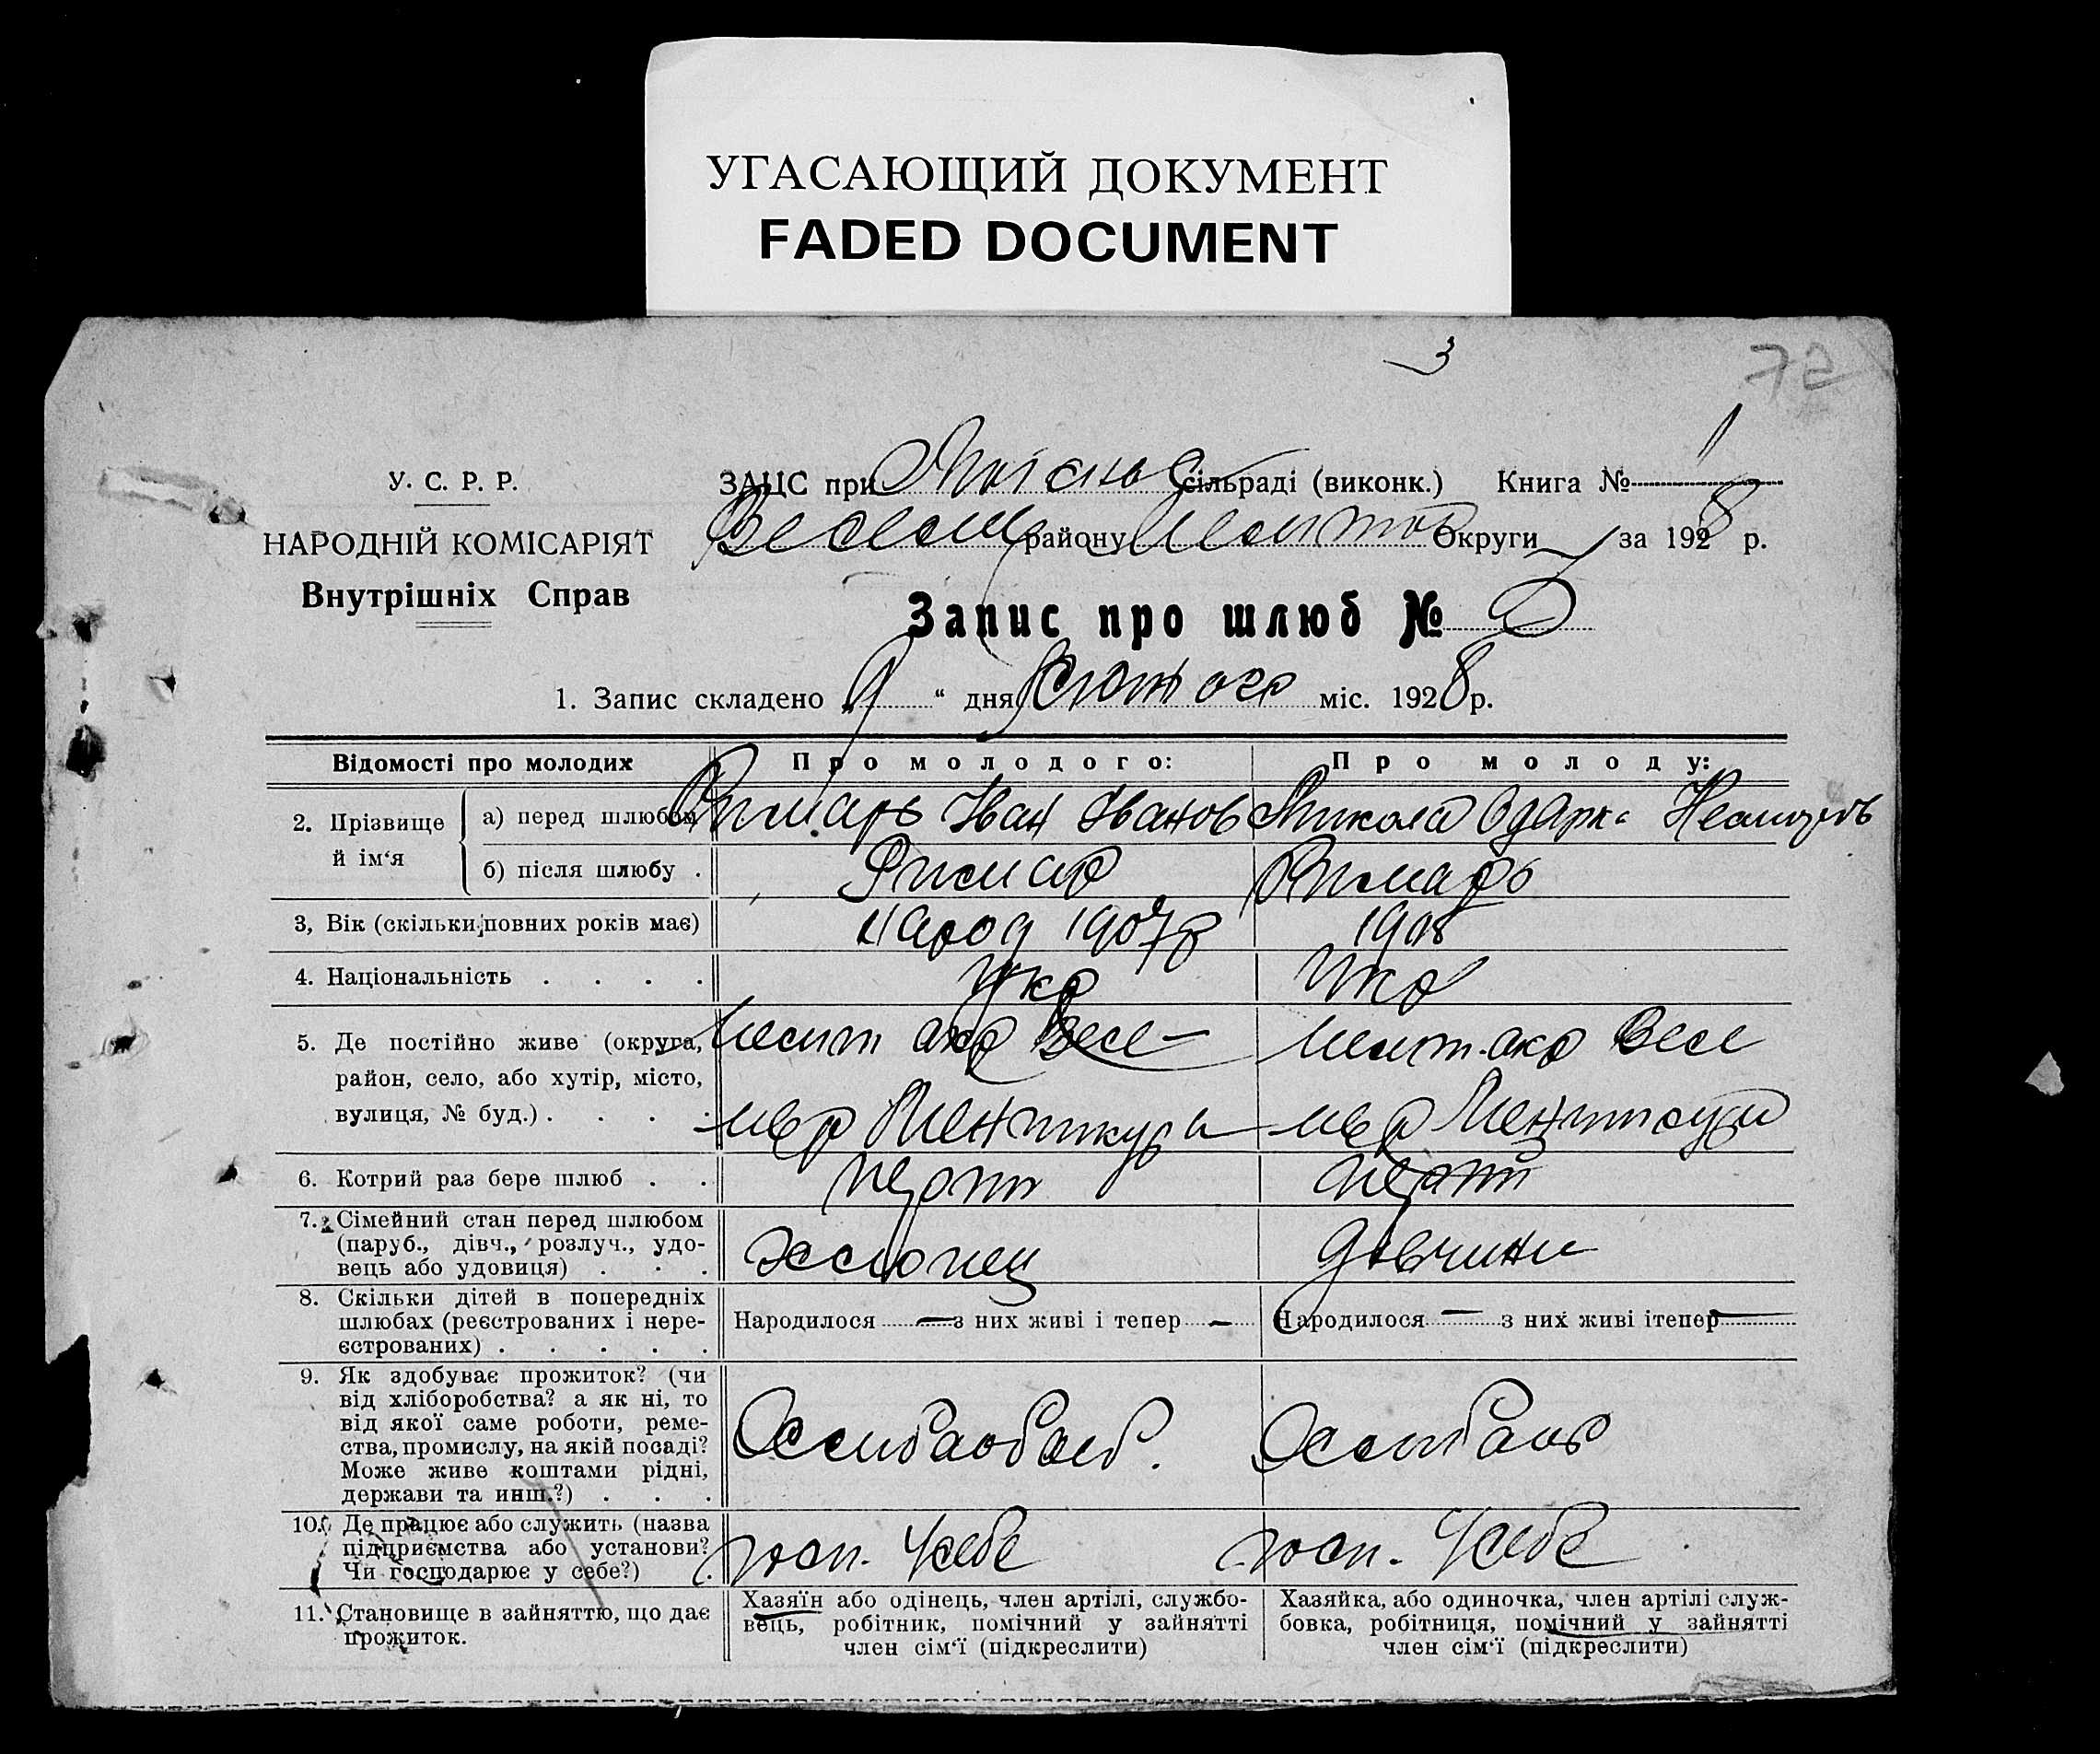 УГАСАЮЩИЙ ДОКУМЕНТ
FADED DOCUMENT
3
72
У. С. Р. Р.
НАРОДНІЙ КОМІСАРІЯТ
Внутрішніх Справ
ЗАЦС при сільраді (виконк.) Книга № 1
району Округи за 1928 р.
Запис про шлюб №
1. Запис складено „9“ дня Лютого міс. 1928 р.
Відомості про молодих
Про молодого:
Про молоду:
2. Прізвище й ім‘я
а) перед шлюбом
Римарь Іван Іванов
Микола Одарка
б) після шлюбу .
Римар
Римарь
3, Вік (скільки повних років має)
народ 1907 р
1908
4. Національність . . . .
Укр
Укр
5. Де постійно живе (округа,
район, село, або хутір, місто,
вулиця, № буд.) . . . .
Меліт окр Весе-
Меліт окр Весе
6. Котрий раз бере шлюб . .
перший
перший
7. Сімейний стан перед шлюбом
(паруб., дівч., розлуч., удо-
вець або удовиця) . . .
Хлопец
Дівчина
8. Скільки дітей в попередніх
шлюбах (реєстрованих і нере-
єстрованих) . . . . .
Народилося — з них живі і тепер —
Народилося — з них живі ітепер —
9. Як здобуває прожиток? (чи
від хліборобства? а як ні, то
від якої саме роботи, реме-
ства, промислу, на якій посаді?
Може живе коштами рідні,
держави та инш.?) . . .
Хлібороб.
Хлібор
10. Де працює або служить (назва
підприємства або установи?
Чи господарює у себе?) .
госп. У себе
госп. У себе
11. Становище в зайняттю, що дає
прожиток.
Хазяїн або одінець, член артілі, службо-
вець, робітник, помічний у зайнятті
член сім‘ї (підкреслити)
Хазяйка, або одиночка, член артілі служ-
бовка, робітниця, помічний у зайнятті
член сім‘ї (підкреслити)